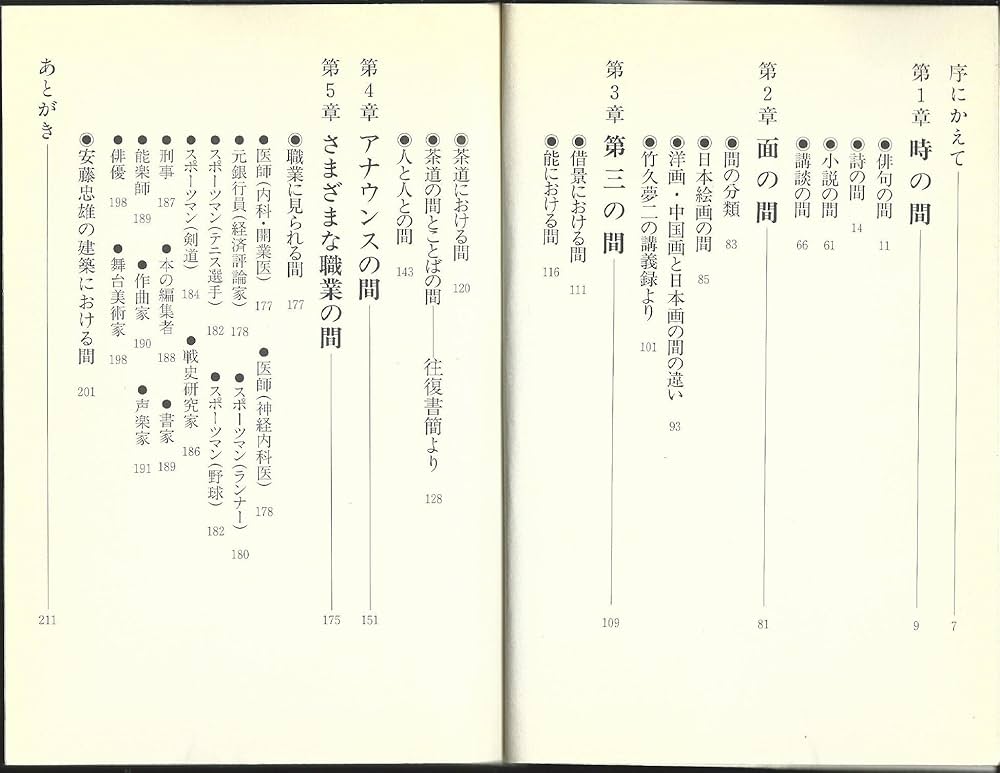 序にかえて 7
第1章 時の間 9
◉俳句の間 11
◉詩の間 14
◉小説の間 61
◉講談の間 66
第2章 面の間 81
◉間の分類 83
◉日本絵画の間 85
◉洋画・中国画と日本画の間の違い 93
◉竹久夢二の講義録より 101
第3章 第三の間 109
◉借景における間 111
◉能における間 116
◉茶道における間 120
◉茶道の間とことばの間――往復書簡より 128
◉人と人との間 143
第4章 アナウンスの間 151
第5章 さまざまな職業の間 175
◉職業に見られる間 177
●医師(内科・開業医) 177 ●医師(神経内科医) 178
●元銀行員(経済評論家) 178 ●スポーツマン(ランナー) 180
●スポーツマン(テニス選手) 182 ●スポーツマン(野球) 182
●スポーツマン(剣道) 184 ●戦史研究家 186
●刑事 187 ●本の編集者 188 ●書家 189
●能楽師 189 ●作曲家 190 ●声楽家 191
●俳優 198 ●舞台美術家 198
◉安藤忠雄の建築における間 201
あとがき 211